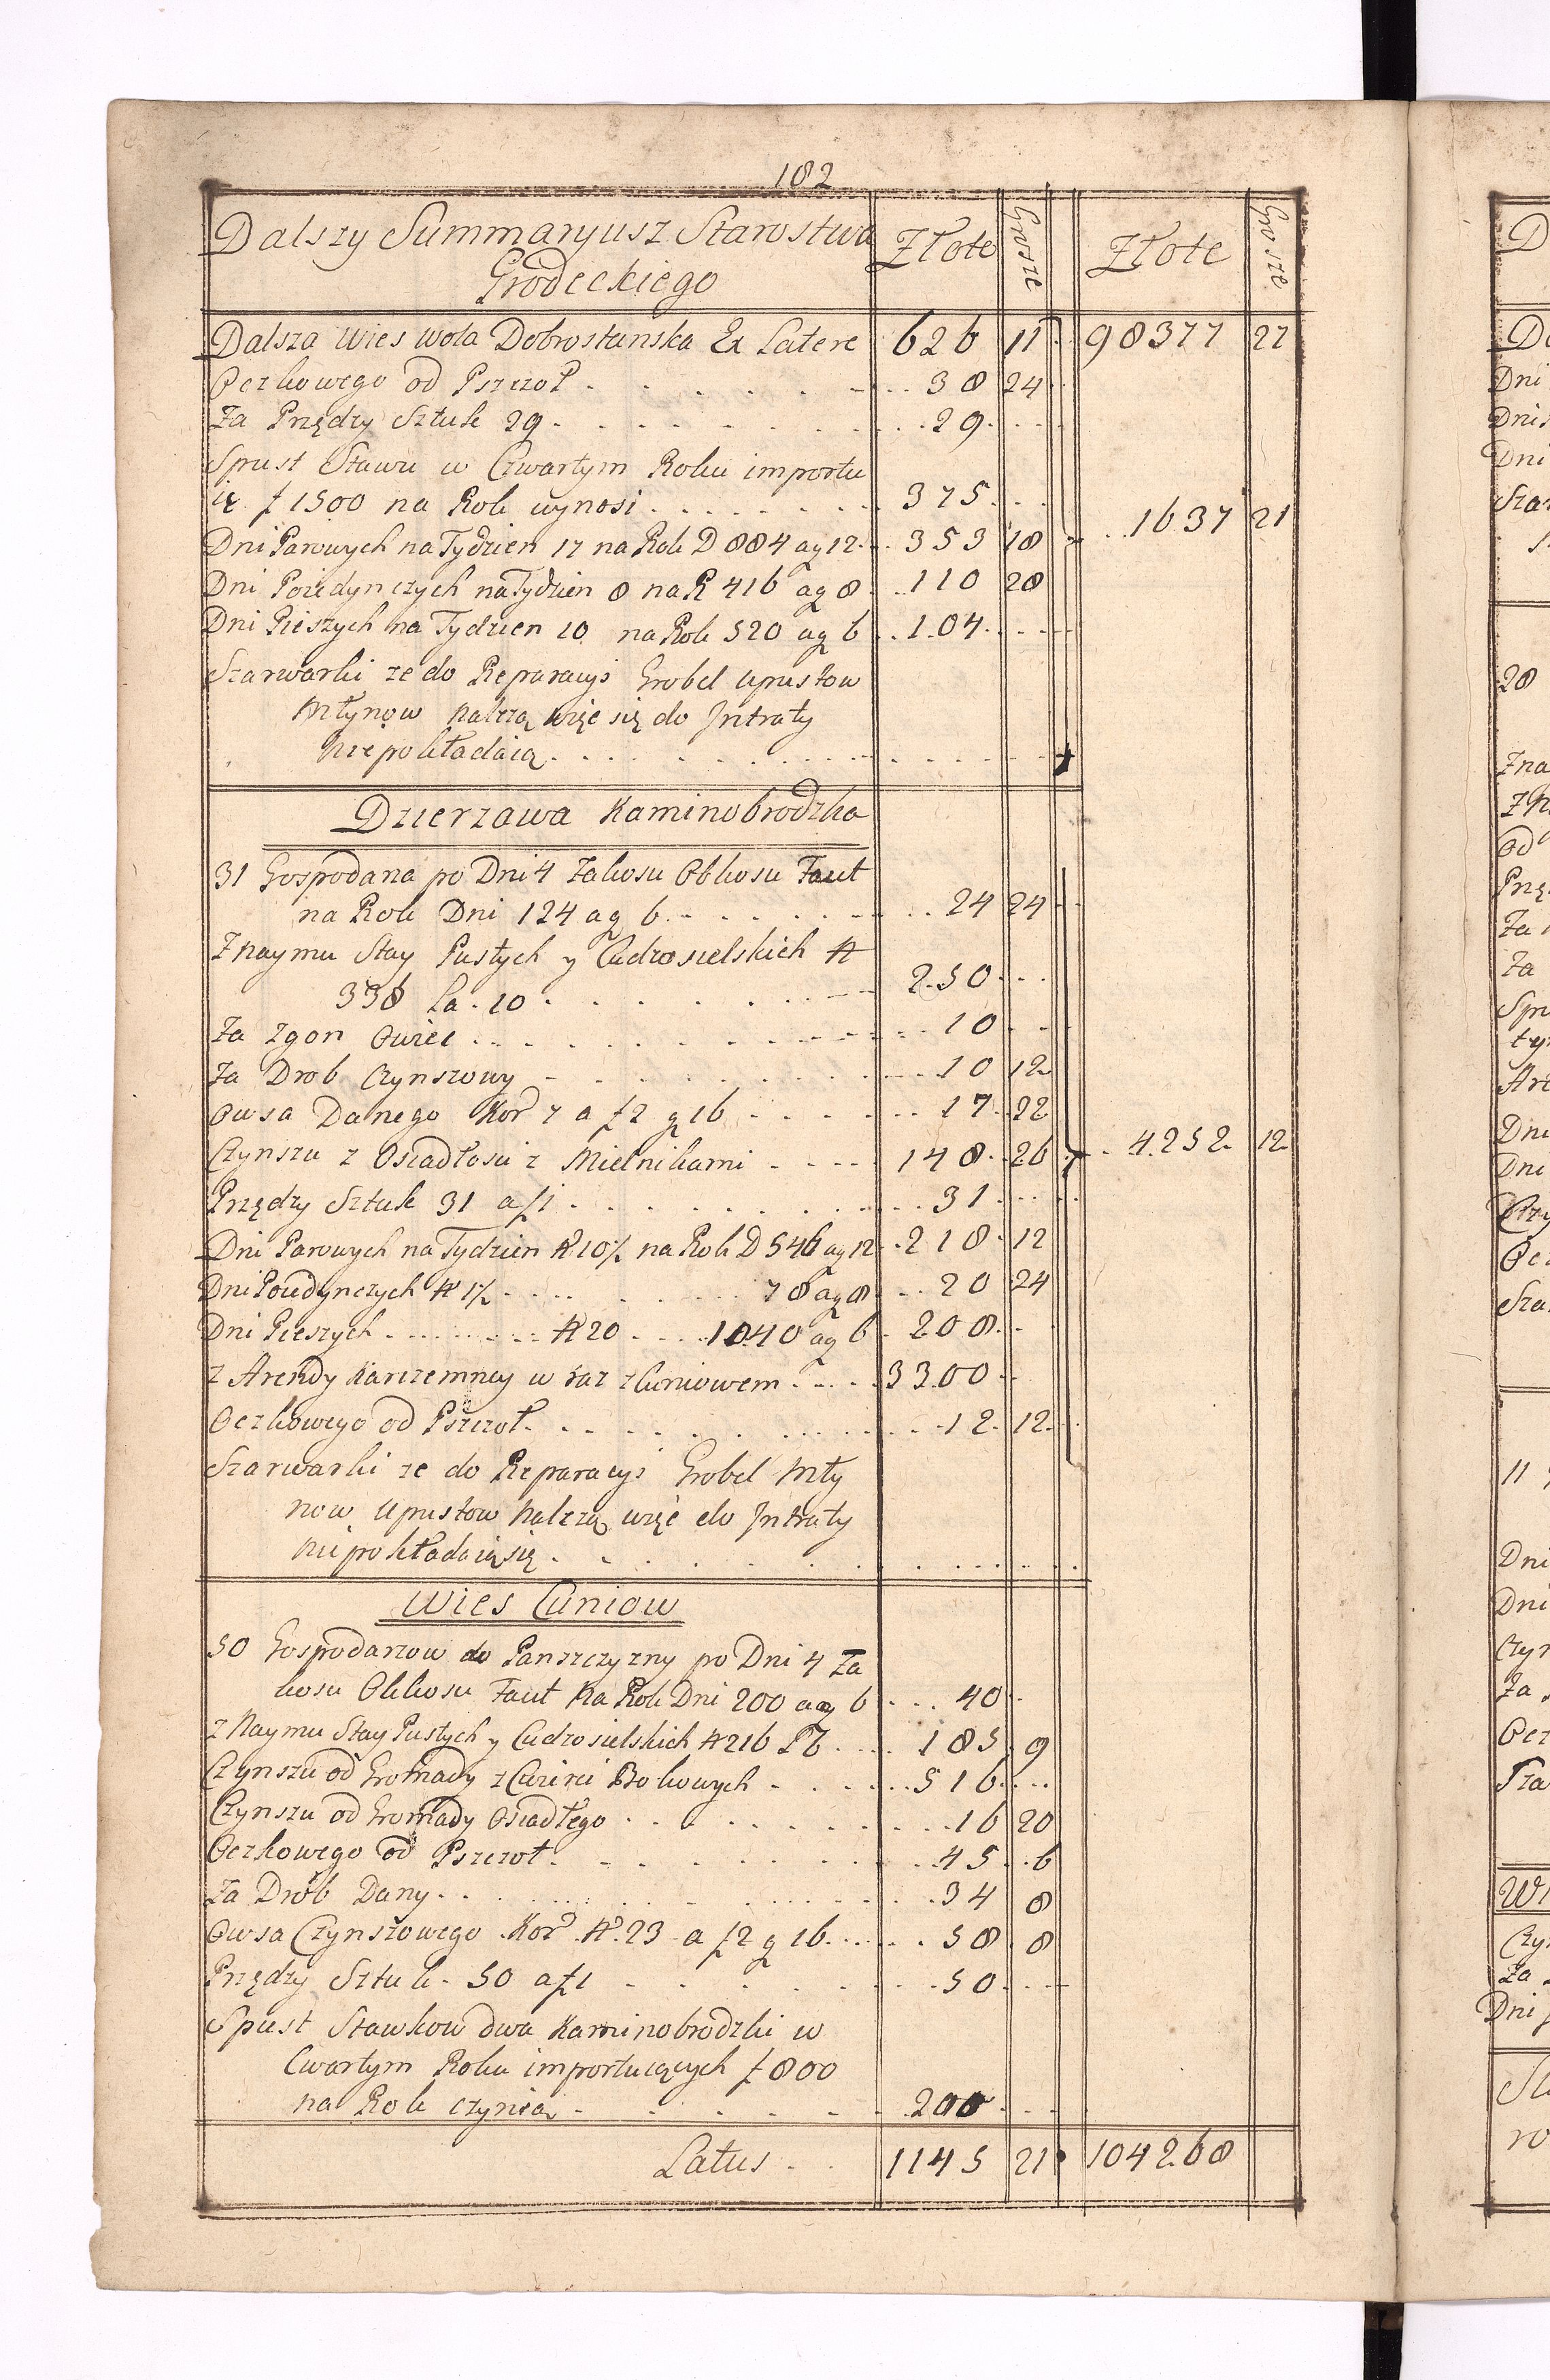 182
Dalszy Summaryusz Starostwa Złote Grosze Złote Grosze
Grodeckiego
Dalsza Wies Wola Dobrostanska Ex Latere 626 11 98377 27
Oczkowego od Pszczoł 38 24
Za Przędzy Sztuk 29 29
Spust Stawu w Czwartym Roku importu
ię f 1500 na Rok wynosi 375
1637 21
Dni Parowych na Tydzien 17 na Rok D 884 a g 12 353 18
Dni Poiedynczych na Tydzien 8 na R 416 a g 8 110 28
Dni Pieszych na Tydzien 10 na Rok 520 a g 6 104
Szarwarki ze do Reparacyi Grobel Upustow
Młynow Nalezą więc się do Jntraty
niepokładaią
Dzierzawa Kaminobrodzka
31 Gospodarza po Dni 4 Zakosu Obkosu Taut
na Rok Dni 124 a g 6 24 24
Z Naymu Stay Pustych y Cudzosielskich N
338 Za 10 250
Za Zgon Owiec 10
Za Drob Czynszowy 10 12
Owsa Danego Kor 7 a f 2 g 16 17 22
Czynszu z Osiadłosci z Mielnikami 148 26 4252 12
Przędzy Sztuk 31 a f 1 31
Dni Parowych na Tydzien N 10½ na Rok D 546 a g 12 218 12
Dni Poiedynczych N 1½ 78 a g 8 20 24
Dni Pieszych N 20 1040 a g 6 208
Z Arendy Karczemney w raz z Cuniowem 3300
Oczkowego od Pszczoł 12 12
Szarwarki ze do Reparacyi Grobel Mły
now Upustow Nalezą więc do Jntraty
niepokładaią się
Wies Cuniow
50 Gospodarzow do Panszczyzny po Dni 4 Za
kosu Obkosu Taut Na Rok Dni 200 a g 6 40
Z Naymu Stay Pustych y Cudzosielskich N 216 185 9
Czynszu od Gromady z Cwierci Bokowych 516
Czynszu od Gromady Osiadłego 16 20
Oczkowego od Pszczoł 45 6
Za Drób Dany 34 8
Owsa Czynszowego Kor N 23 a f 2 g 16 58 8
Przędzy Sztuk 50 a f 1 50
Spust Stawkow dwa Kaminobrodzki w
Cwartym Roku importuiących f 800
na Rok czynią 200
Latus 1145 21 104268